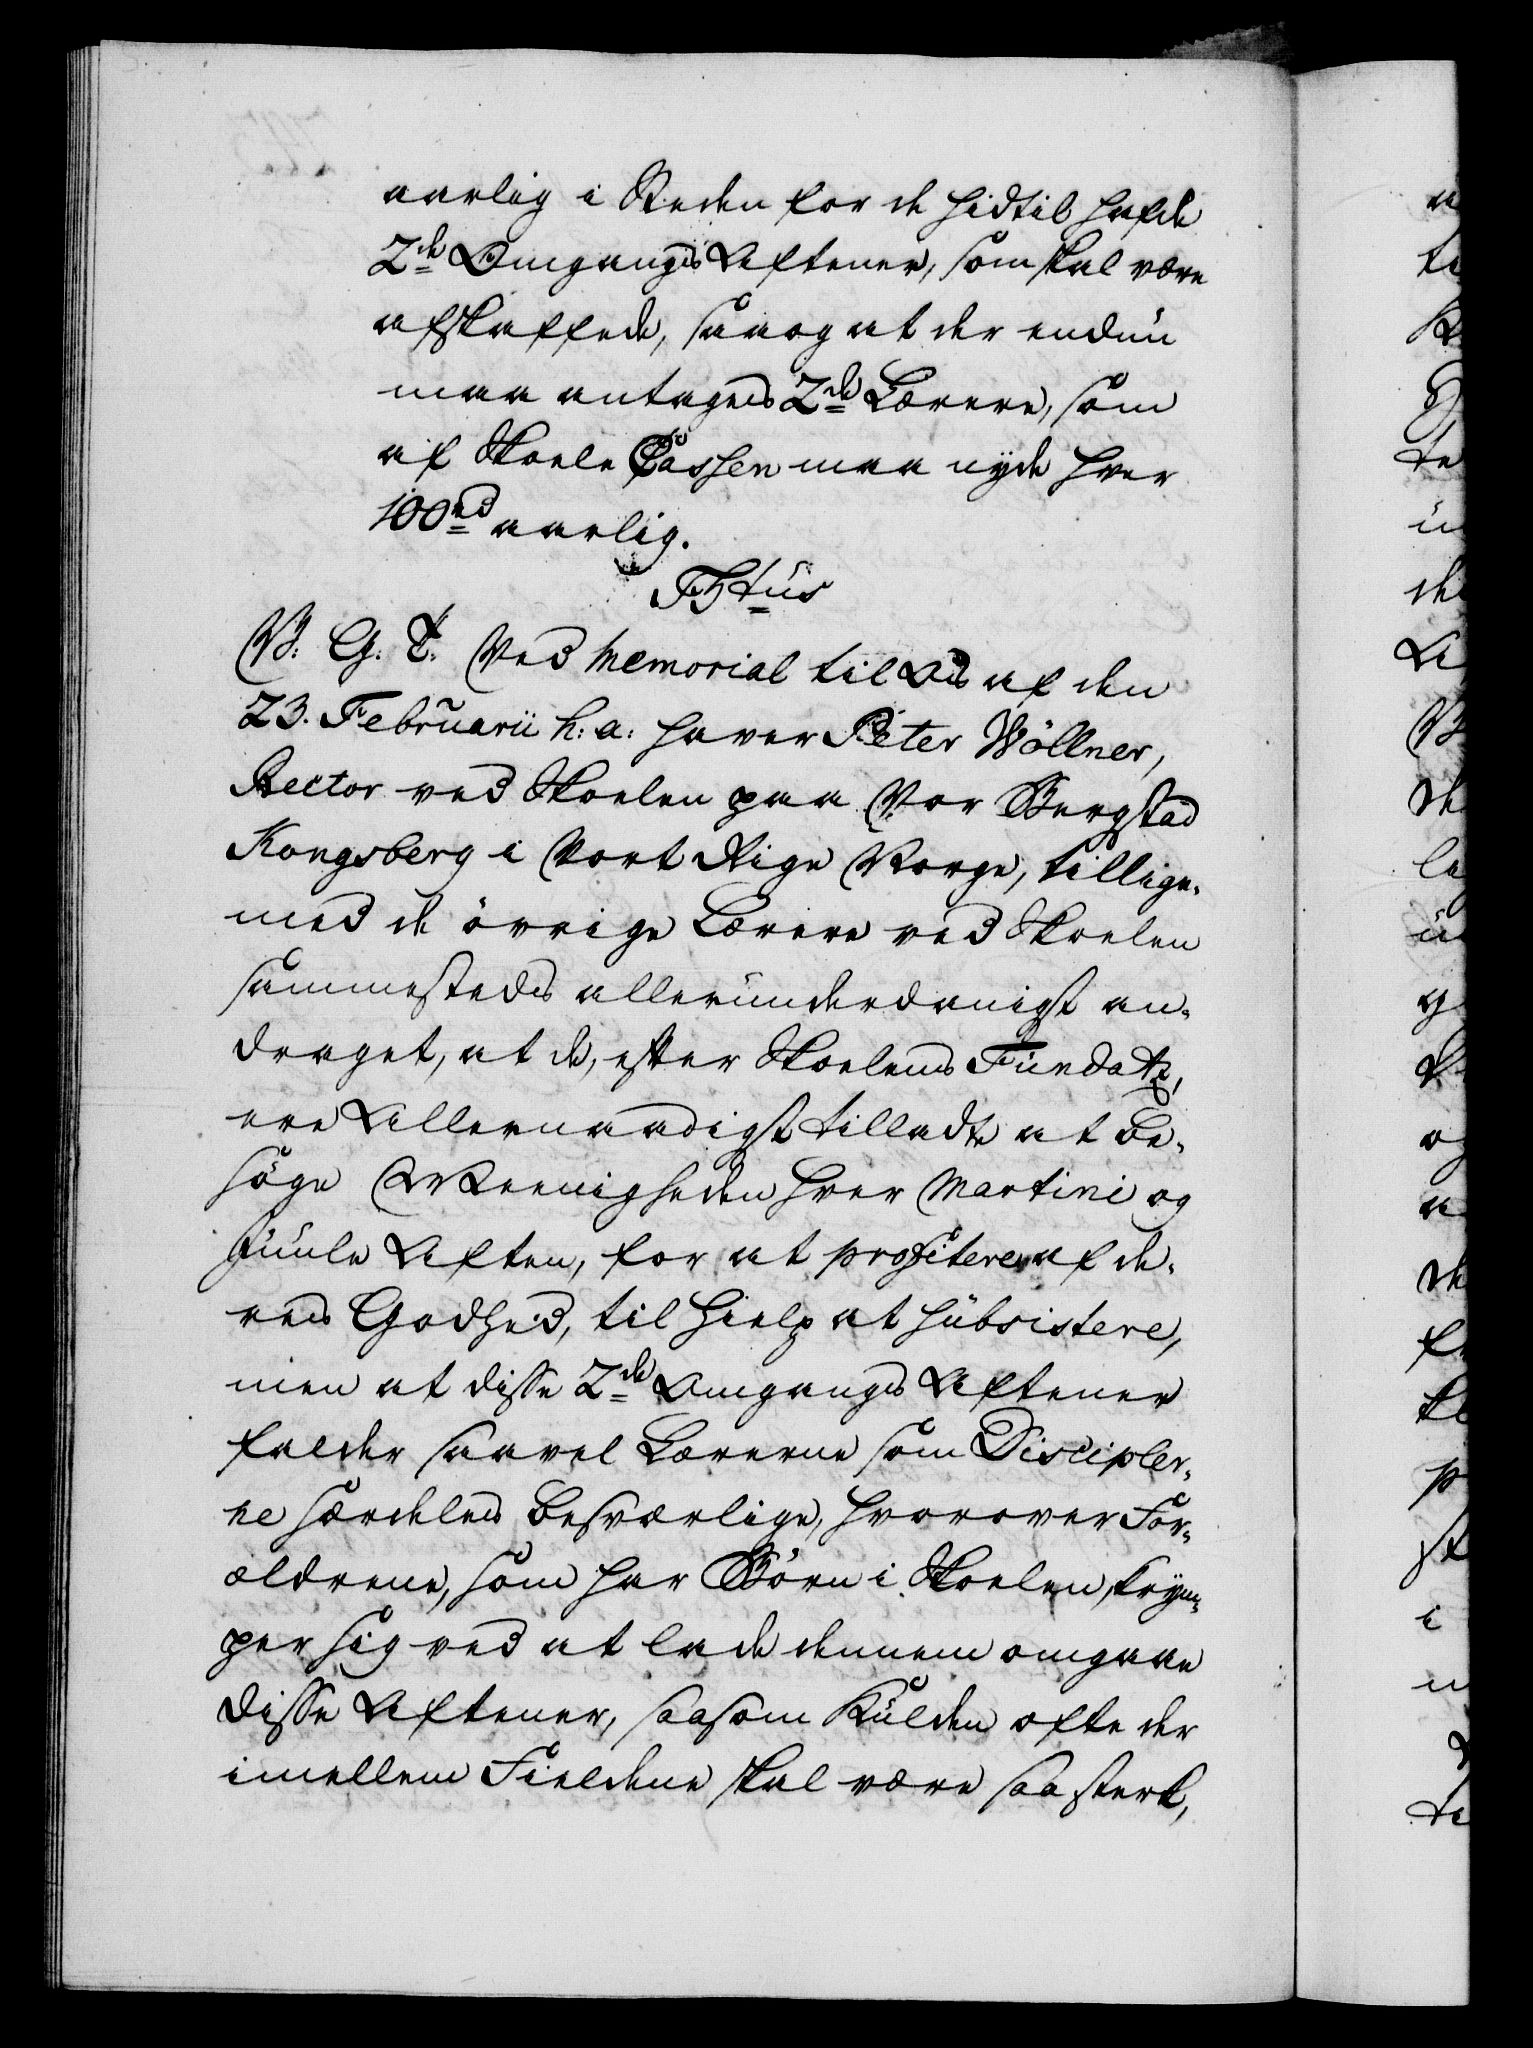 aarlig i Steden for de hidtil hafde
2de Omgangs Aftener, som skal være
afskaffede, saaog at der endnu
maa antages 2de Lærere, som
af Skoele Cassen maa nyde hver
100rd aarlig.
F5tus
V. G. T. Ved Memorial til Os af den
23. Februarii h: a: haver Peter Wöllner,
Rector ved Skoelen paa Vor Bergstad
Kongsberg i Vort Rige Norge, tillige-
med de övrige Lærere ved Skoelen
sammesteds allerunderdanigst an-
draget, at de, efter Skoelens Fundatz,
ere Allernaadigst tilladte at be-
söge Meenigheden hver Martini og
Juule Aften, for at profitere af de-
res Godhed, til Hielp at subsistere,
men at disse 2de Omgangs Aftener
falder saavel Lærerne som Discipler-
ne særdeles besværlige, hvorover For-
ældrene, som har Börn i Skoelen, krym-
per sig ved at lade dennem omgaae
disse Aftener, saasom Kulden ofte der
imellem Fieldene skal være saa sterk,